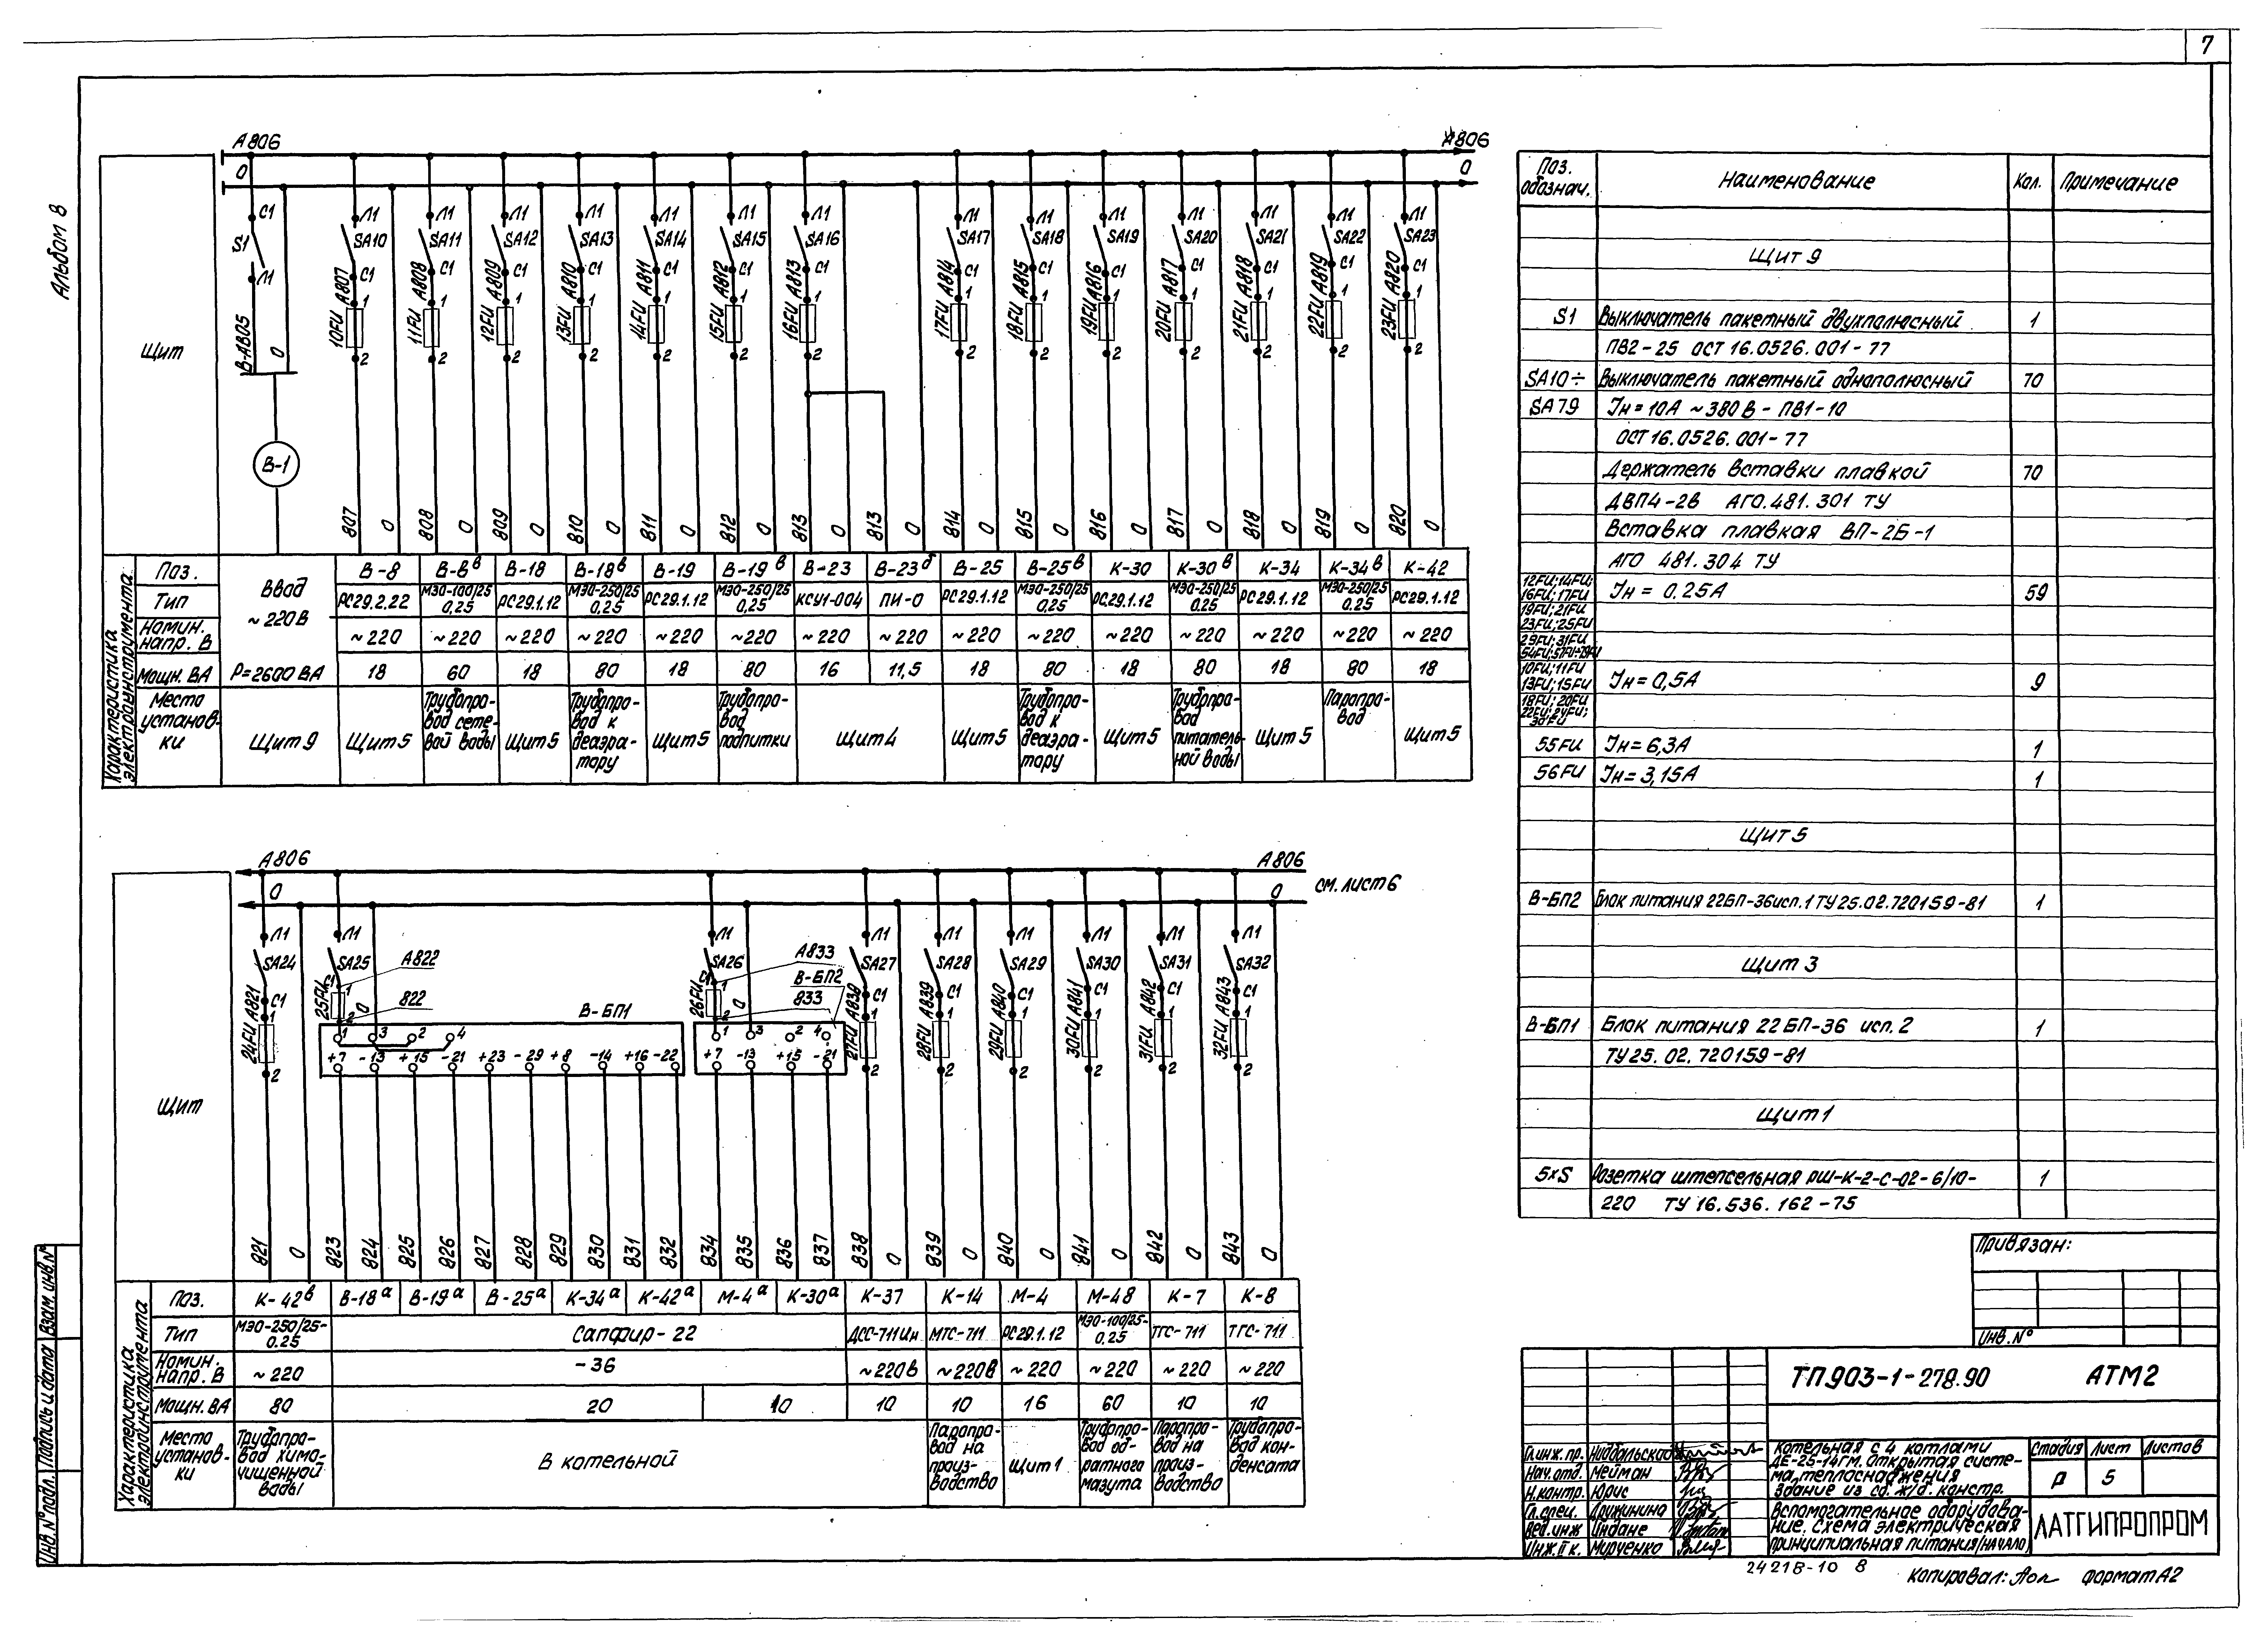 7
Альбом 8
А806
А806
0
0
С1
S1
Л1
В-А805
0
В-1
Щит
Л1 Л1 Л1 Л1 Л1 Л1 Л1 Л1 Л1 Л1 Л1 Л1 Л1 Л1
SA10 SA11 SA12 SA13 SA14 SA15 SA16 SA17 SA18 SA19 SA20 SA21 SA22 SA23
С1 С1 С1 С1 С1 С1 С1 С1 С1 С1 С1 С1 С1 С1
А807 А808 А809 А810 А811 А812 А813 А814 А815 А816 А817 А818 А819 А820
1 1 1 1 1 1 1 1 1 1 1 1 1 1
10FU 11FU 12FU 13FU 14FU 15FU 16FU 17FU 18FU 19FU 20FU 21FU 22FU 23FU
2 2 2 2 2 2 2 2 2 2 2 2 2 2
807 0 808 0 809 0 810 0 811 0 812 0 813 0 813 0 814 0 815 0 816 0 817 0 818 0 819 0 820 0
Характеристика электроинструмента
Поз. Ввод ~220В В-8 В-8в В-18 В-18в В-19 В-19в В-23 В-23б В-25 В-25в К-30 К-30в К-34 К-34в К-42
Тип РС29.2.22 МЭО-100/25 0,25 РС29.1.12 МЭО-250/25 0,25 РС29.1.12 МЭО-250/25 0,25 КСУ1-004 ПИ-0 РС29.1.12 МЭО-250/25 0,25 РС29.1.12 МЭО-250/25 0,25 РС29.1.12 МЭО-250/25 0.25 РС29.1.12
Номин. напр. В ~220 ~220 ~220 ~220 ~220 ~220 ~220 ~220 ~220 ~220 ~220 ~220 ~220 ~220 ~220
Мощн. ВА Р=2600 ВА 18 60 18 80 18 80 16 11,5 18 80 18 80 18 80 18
Место установ-ки Щит 9 Щит 5 Трубопро-вод сете-вой воды Щит 5 Трубопро-вод к деаэра-тору Щит 5 Трубопро-вод подпитки Щит 4 Щит 5 Трубопро-вод к деаэра-тору Щит 5 Трубопро-вод питатель-ной воды Щит 5 Паропро-вод Щит 5
А806
А806
0
0
см. лист 6
Щит
Л1 Л1 Л1 Л1 Л1 Л1 Л1 Л1 Л1
SA24 SA25 SA26 SA27 SA28 SA29 SA30 SA31 SA32
А822
822
А833
В-БП2
833
В-БП1
С1 С1 С1 С1 С1 С1 С1 С1 С1
А821 А838 А839 А840 А841 А842 А843
24FU 25FU 26FU 27FU 28FU 29FU 30FU 31FU 32FU
1 3 2 4
+7 -13 +15 -21 +23 -29 +8 -14 +16 -22
1 3 2 4
+7 -13 +15 -21
2 2 2 2 2 2 2
821 0 823 824 825 826 827 828 829 830 831 832 834 835 836 837 838 0 839 0 840 0 841 0 842 0 843 0
Характеристика электроинструмента
Поз. К-42в В-18а В-19а В-25а К-34а К-42а М-4а К-30а К-37 К-14 М-4 М-4в К-7 К-8
Тип МЭО-250/25-0.25 Сапфир-22 ДСС-711Ин МТС-711 РС29.1.12 МЭО-100/25-0,25 ТГС-711 ТГС-711
Номин. напр. В ~220 -36 ~220в ~220в ~220 ~220 ~220 ~220
Мощн. ВА 80 20 10 10 10 16 60 10 10
Место установ-ки Трубопро-вод химо-чищенной воды В котельной Паропро-вод на произ-водство Щит 1 Трубопро-вод об-ратного мазута Паропро-вод на произ-водство Трубопро-вод кон-денсата
Поз. обознач. Наименование Кол. Примечание
Щит 9
S1 Выключатель пакетный двухполюсный 1
ПВ2-25 ОСТ 16.0526.001-77
SA10÷ Выключатель пакетный однополюсный 70
SA79 Iн=10А ~380 В - ПВ1-10
ОСТ 16.0526.001-77
Держатель вставки плавкой 70
ДВП4-2в АГО.481.301 ТУ
Вставка плавкая ВП-2Б-1
АГО 481.304 ТУ
12FU;14FU;
16FU;17FU Iн = 0.25А 59
19FU;21FU
23FU;25FU
29FU;31FU
54FU;57FU÷79FU
10FU;11FU
13FU;15FU Iн=0,5А 9
18FU;20FU
22FU;24FU;
30FU
55FU Iн=6,3А 1
56FU Iн=3,15А 1
Щит 5
В-БП2 Блок питания 22БП-36исп.1 ТУ25.02.720159-81 1
Щит 3
В-БП1 Блок питания 22БП-36 исп. 2 1
ТУ25.02.720159-81
Щит 1
5xS Розетка штепсельная РШ-К-2-С-02-6/10- 1
220 ТУ 16.536.162-75
Привязан:
Инв. №
ТП903-1-278.90 АТМ2
Гл.инж. пр.
Нач. отд. Мейман
Н.контр. Юрис
Гл. спец. Дружинина
Вед.инж Индане
Инж. II к. Мирченко
Котельная с 4 котлами
ДЕ-25-14ГМ. Открытая систе-
ма теплоснабжения
Здание из сб. ж/б. констр.
Стадия Лист Листов
Р 5
Вспомогательное оборудова-
ние. Схема электрическая
принципиальная питания (начало)
ЛАТГИПРОПРОМ
24218-10 8
Копировал: формат А2
Инв. № подл. Подпись и дата Взам. инв. №